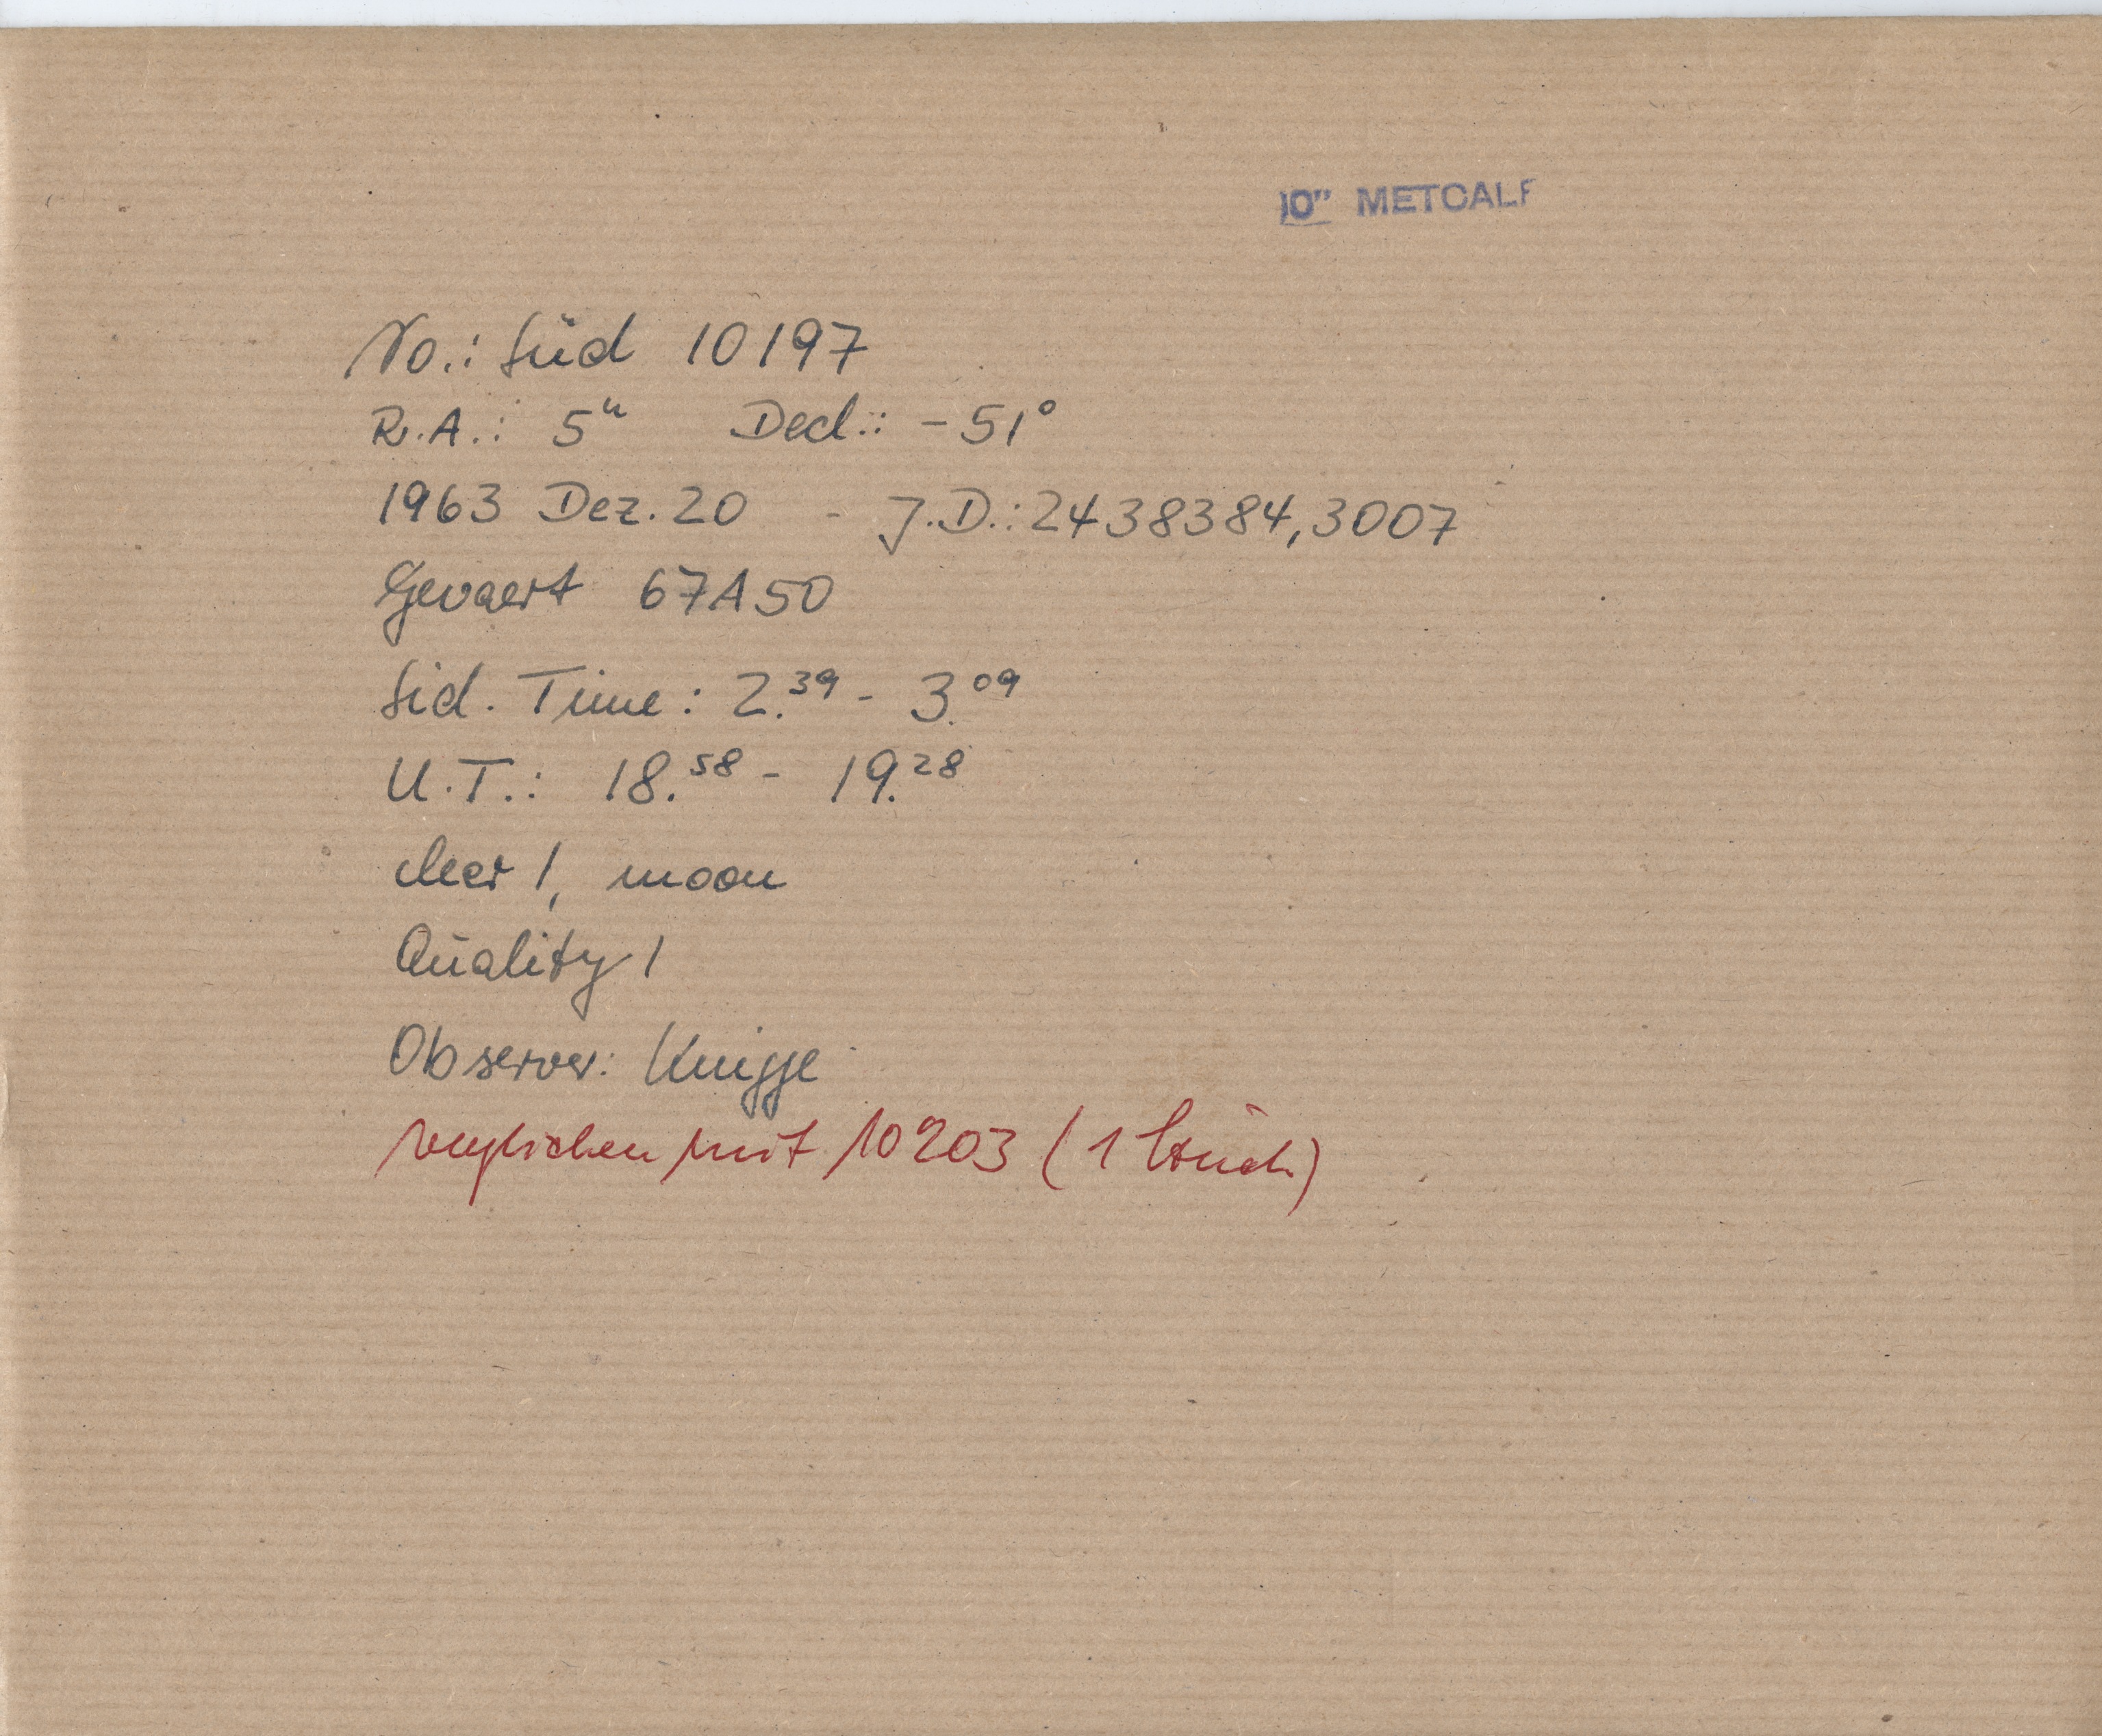 10" METCALF
No.: Süd 10197
R.A.: 5ʰ Decl.: -51°
1963 Dez. 20 - J.D.: 2438384,3007
Gevaert 67A50
Sid. Time: 2.³⁹ - 3.⁰⁹
U.T.: 18.⁵⁸ - 19.²⁸
clear 1, moon
Quality 1
Observer: Knigge
verglichen mit 10203 (1 Stück)